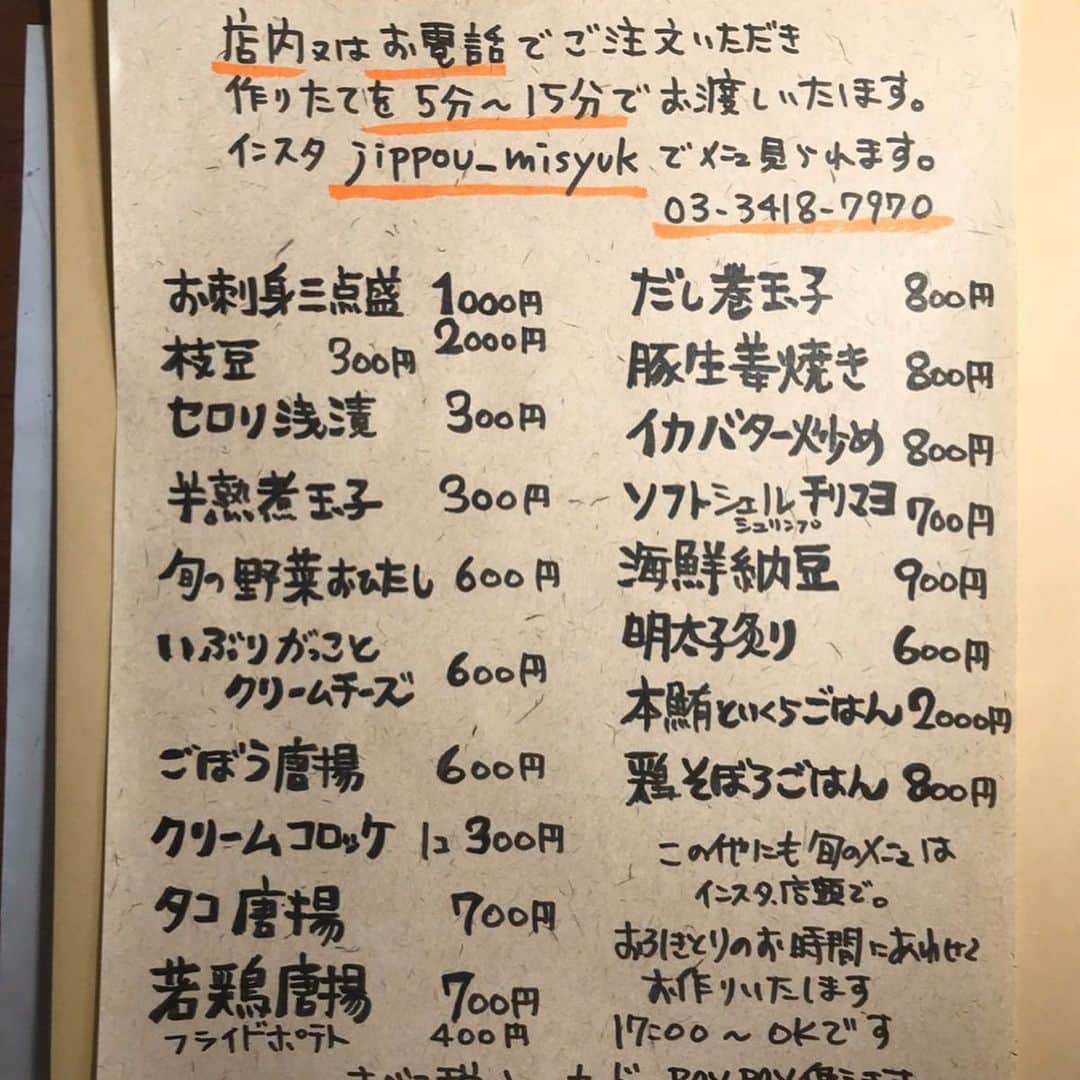 店内又はお電話でご注文いただき
作りたてを5分〜15分でお渡しいたします。
インスタ jippou_misyuk でメニュー見られます。
03-3418-7970
お刺身三点盛 1000円
2000円
枝豆 300円
セロリ浅漬 300円
半熟煮玉子 300円
旬の野菜おひたし 600円
いぶりがっこと
クリームチーズ 600円
ごぼう唐揚 600円
クリームコロッケ 1コ 300円
タコ唐揚 700円
若鶏唐揚 700円
フライドポテト 400円
だし巻玉子 800円
豚生姜焼き 800円
イカバター炒め 800円
ソフトシェルチリマヨ 700円
シュリンプ
海鮮納豆 900円
明太子炙り 600円
本鮪といくらごはん 2000円
鶏そぼろごはん 800円
この他にも旬のメニューは
インスタ、店頭で。
お引きとりのお時間にあわせて
お作りいたします
17:00〜OKです